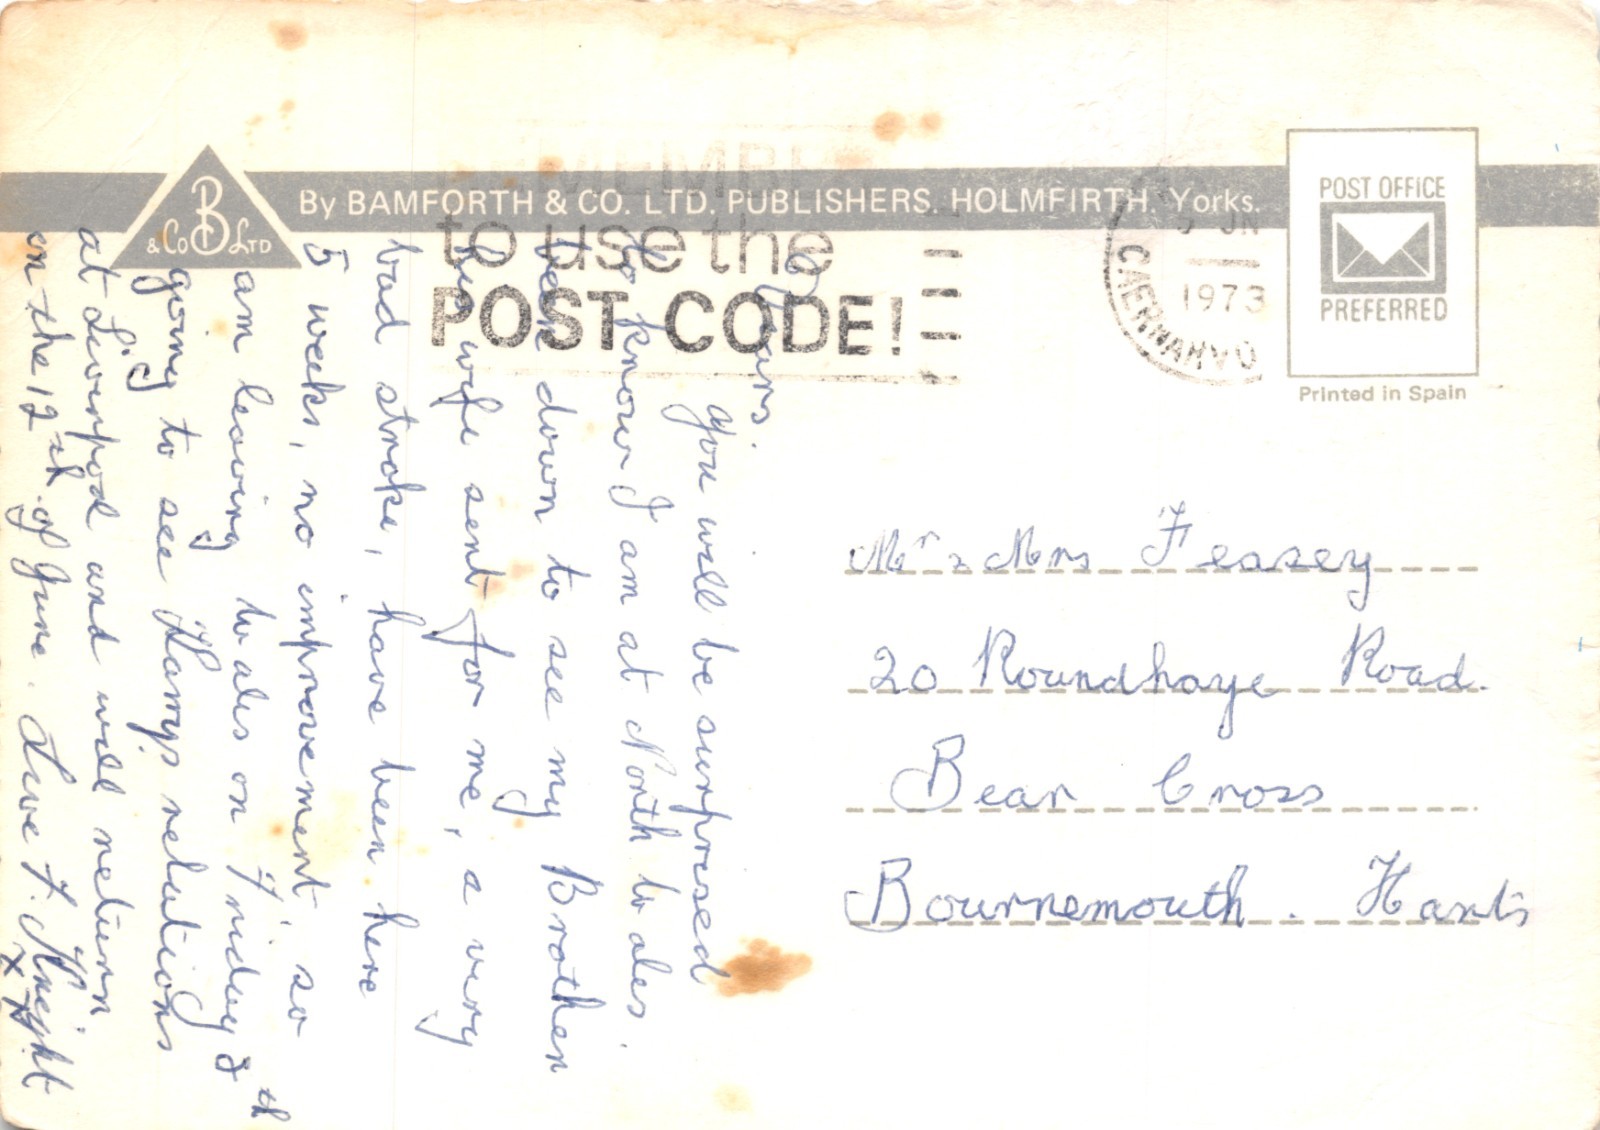 By BAMFORTH & CO. LTD. PUBLISHERS. HOLMFIRTH, Yorks.
B
& Co LTD
to use the
POST CODE!
JN
1973
CAERNARVO
POST OFFICE
PREFERRED
Printed in Spain
you will be surprised
to know I am at North Wales.
been down to see my Brother
his wife sent for me, a very
bad stroke, have been here
5 weeks, no improvement, so
am leaving Wales on Friday 8th
going to see Harrys relations
at Liverpool and will return
on the 12th of June. Love F. Knight
x x
Mr & Mrs Feasey
20 Roundhaye Road.
Bear Cross
Bournemouth. Hants